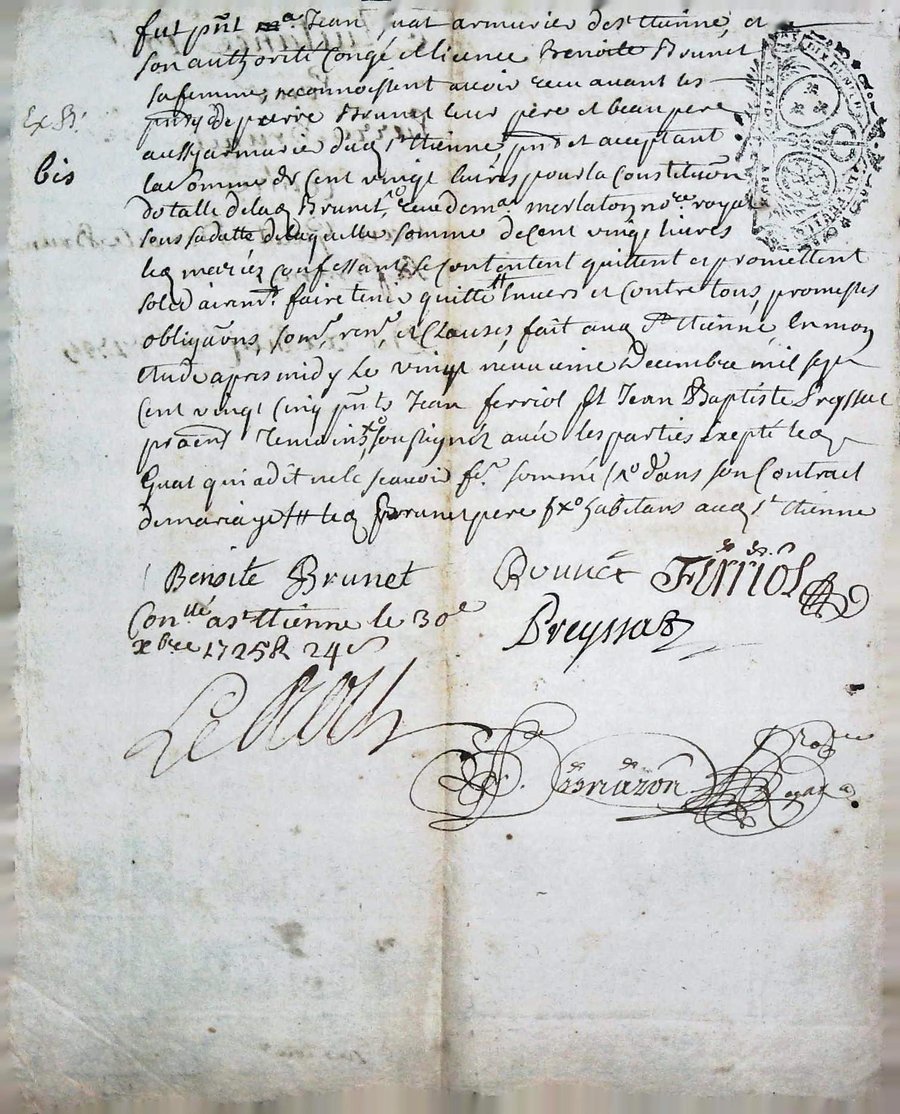 fut pñt Jean Quat armurier de st etienne, et
son authorité Congé et licence Benoite Brunet
sa femme, reconnoissent avoir receu avant les
pñtes de pierre Brunet leur pere et beau pere
Ex B.
aussy armurier dud st etienne pñt et acceptant
bis
la somme de Cent vingt livres pour la Constitution
dotalle de lad Brunet, merlaton nore royal
sous sa datte de laquelle somme de Cent vingt livres
led mariés confessants se contentent quittent et promettent
solidairemt faire tenir quitte Envers et Contre tous, promesses
obligãons, somõ, renõ, et Clauses, fait aud st etienne En mon
etude apres midy le vingt neuvieme Decembre mil sept
Cent vingt Cinq pñts Jean ferriol Et Jean Baptiste Preyssat
praticiens Temoins, soussignés avec les parties Exepté led
Quat qui a dit ne le scavoir fe sommé dans son Contract
de mariage # led Brunet pere habitans aud st etienne
Benoite Brunet
Ferriol
Conllé a st etienne le 30e
xbre 1725 R 24 s
Preyssat
royal